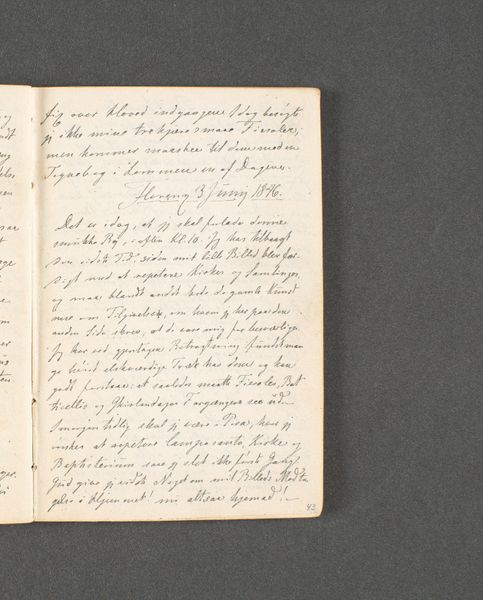 sig over Hoved indgangene. I dag besøgte
jeg ikke mine trekjære smaae Fiesoler,
men kommer maaskee til dem med en
Tegnebog i Lommen en af Dagene.
Florenz 3 Juny 1846.
Det er idag, at jeg skal forlade denne
smukke By, i aften Kl. 10. Jeg har tilbragt
den sidste Tid, siden mit lille Billed blev
med at repetere Kirker og Samlinger,
og maae blandt andet bede de gamle Kunst
nere om Tilgivelse, om hvem jeg her paa den
anden Side skrev, at de vare mig for
Jeg har ved Betragtning fundet man
ge høist elskværdige Træk hos dem og kan
godt forstaae: at saaledes maatte Fiesoles, Bot
ticellis og Ghirlandajos Forgængere see ud.
Imorgen tidlig skal jeg være i Pisa, hvor jeg
ønsker at repetere Camposanto, Kirke og
Baptisterium som jeg slet ikke første Gang.
Gud give jeg vidste Noget om mit Billeds Modta
gelse i Hjemmet! nu altsaa hjemad!
43